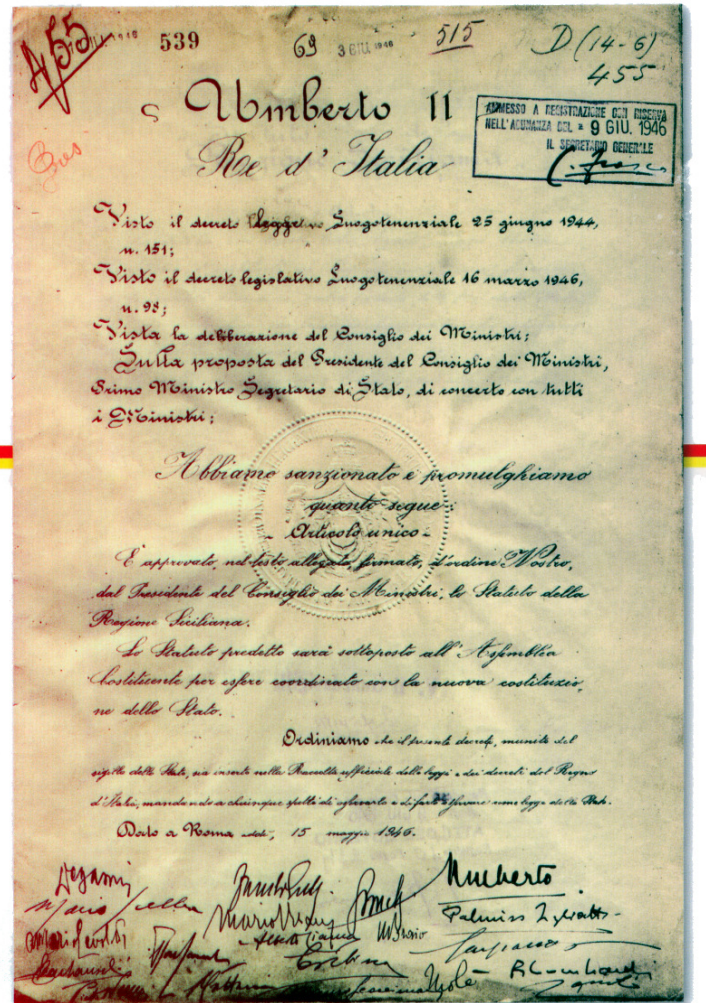 455
539
69
3 GIU. 1946
515
D (14-6)
455
Umberto II
Re d' Italia
AMMESSO A REGISTRAZIONE CON RISERVA
NELL'ADUNANZA DEL 9 GIU. 1946
IL SEGRETARIO GENERALE
Visto il decreto legge Luogotenenziale 25 giugno 1944,
n. 151;
Visto il decreto legislativo Luogotenenziale 16 marzo 1946,
n. 98;
Vista la deliberazione del Consiglio dei Ministri;
Sulla proposta del Presidente del Consiglio dei Ministri,
Primo Ministro Segretario di Stato, di concerto con tutti
i Ministri;
Abbiamo sanzionato e promulghiamo
quanto segue:
- Articolo unico -
È approvato, nel testo allegato, firmato, d'ordine Nostro,
dal Presidente del Consiglio dei Ministri, lo Statuto della
Regione Siciliana.
Lo Statuto predetto sarà sottoposto all'Assemblea
Costituente per essere coordinato con la nuova costituzio,
ne dello Stato.
Ordiniamo che il presente decreto, munito del
sigillo dello Stato, sia inserto nella Raccolta ufficiale delle leggi e dei decreti del Regno
d'Italia, mandando a chiunque spetti di osservarlo e di farlo osservare come legge dello Stato.
Dato a Roma addì, 15 maggio 1946.
Umberto